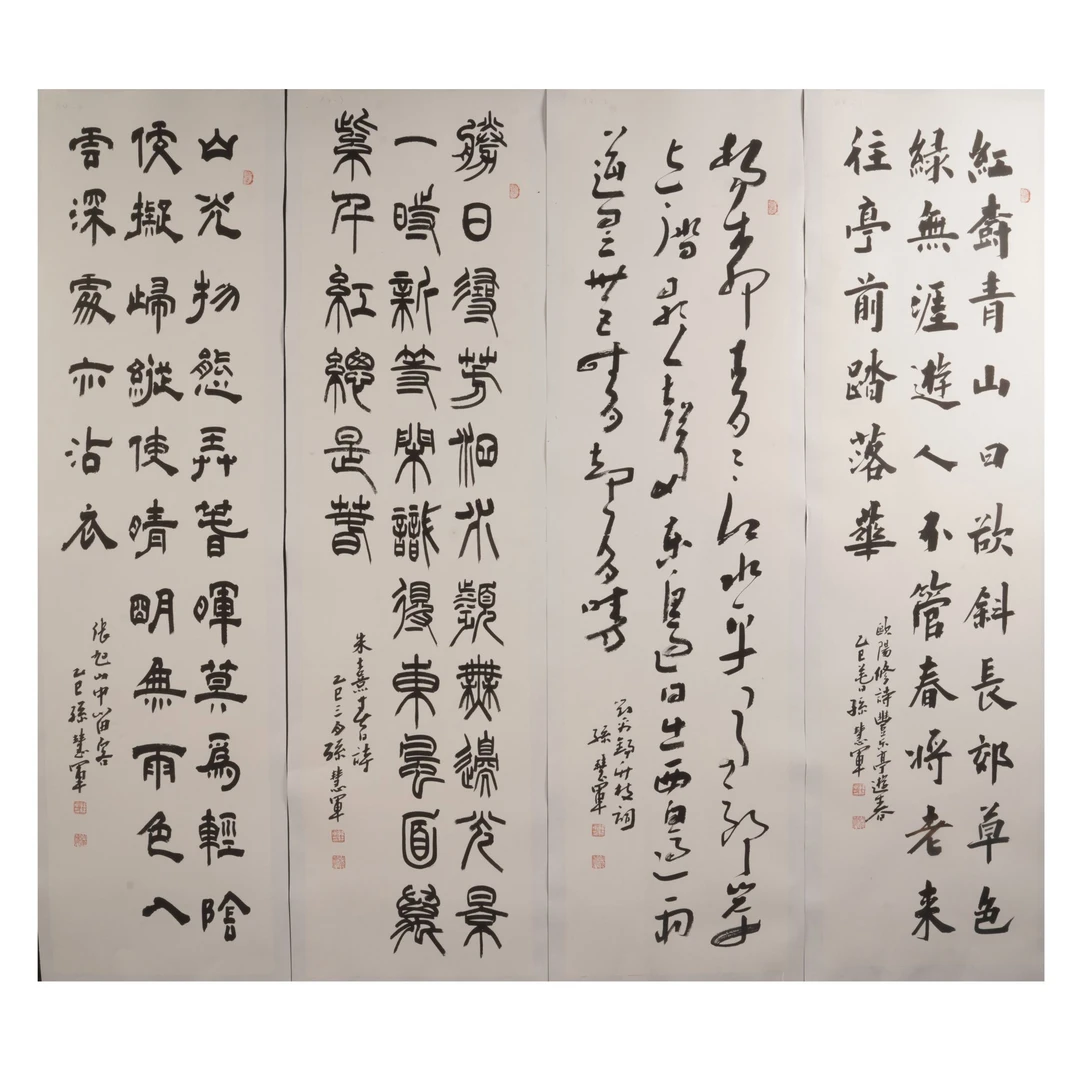 紅樹青山日欲斜長郊草色
綠無涯遊人不管春將老来
往亭前踏落華
歐陽修詩豐乐亭遊春
乙巳春日孫慧軍
楊柳青〻江水平聞郎岸
上踏歌聲東邊日出西邊雨
道是無晴却有晴
劉禹錫竹枝詞
孫慧軍
勝日尋芳泗水濱無邊光景
一時新等閑識得東風面萬
紫千紅總是春
朱熹春日詩
乙巳三月孫慧軍
山光物態弄春暉莫爲輕陰
便擬歸縱使晴明無雨色入
雲深處亦沾衣
張旭山中留客
乙巳孫慧軍